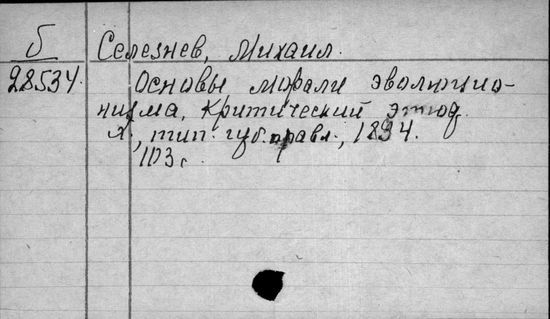 Б Селезнев, Михаил.
28534 Основы морали эволюцио-
низма, Критический этюд.
Х., тип. губ. правл., 1894.
103 с.